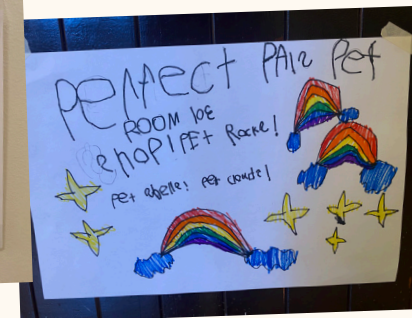 PERfECT PAIR PET
ROOM 108
SHOP! PET Rocks!
PET shells! PET clouds!